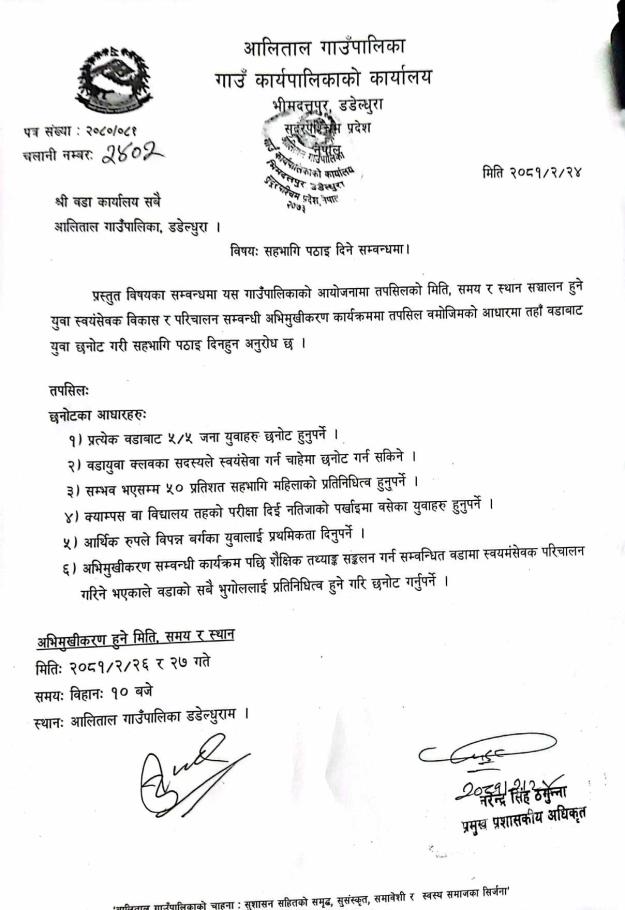 आलिताल गाउँपालिका
गाउँ कार्यपालिकाको कार्यालय
भीमदत्तपुर, डडेल्धुरा
सुदूरपश्चिम प्रदेश
नेपाल
आलिताल गाउँपालिका
गाउँ कार्यपालिकाको कार्यालय
भिमदत्तपुर डडेल्धुरा
सुदूरपश्चिम प्रदेश, नेपाल
२०७३
पत्र संख्या : २०८०/०८१
चलानी नम्बर: २४०२
मिति २०८१/२/२४
श्री वडा कार्यालय सबै
आलिताल गाउँपालिका, डडेल्धुरा ।
विषय: सहभागि पठाइ दिने सम्बन्धमा।
प्रस्तुत विषयका सम्बन्धमा यस गाउँपालिकाको आयोजनामा तपसिलको मिति, समय र स्थान सञ्चालन हुने
युवा स्वयंसेवक विकास र परिचालन सम्बन्धी अभिमुखीकरण कार्यक्रममा तपसिल वमोजिमको आधारमा तहाँ वडाबाट
युवा छनोट गरी सहभागि पठाइ दिनहुन अनुरोध छ ।
तपसिल:
छनोटका आधारहरु:
१) प्रत्येक वडाबाट ५/५ जना युवाहरु छनोट हुनुपर्ने ।
२) वडायुवा क्लवका सदस्यले स्वयंसेवा गर्न चाहेमा छनोट गर्न सकिने ।
३) सम्भव भएसम्म ५० प्रतिशत सहभागि महिलाको प्रतिनिधित्व हुनुपर्ने ।
४) क्याम्पस वा विद्यालय तहको परीक्षा दिई नतिजाको पर्खाइमा वसेका युवाहरु हुनुपर्ने ।
५) आर्थिक रुपले विपन्न बर्गका युवालाई प्रथमिकता दिनुपर्ने ।
६) अभिमुखीकरण सम्बन्धी कार्यक्रम पछि शैक्षिक तथ्याङ्क सङ्कलन गर्न सम्बन्धित वडामा स्वयमंसेवक परिचालन
गरिने भएकाले वडाको सबै भुगोललाई प्रतिनिधित्व हुने गरि छनोट गर्नुपर्ने ।
अभिमुखीकरण हुने मिति, समय र स्थान
मिति: २०८१/२/२६ र २७ गते
समय: विहान: १० बजे
स्थान: आलिताल गाउँपालिका डडेल्धुराम ।
नरेन्द्र सिंह ठगुन्ना
प्रमुख प्रशासकीय अधिकृत
'आलिताल गाउँपालिकाको चाहना : सुशासन सहितको समृद्ध, सुसंस्कृत, समावेशी र स्वस्थ समाजका सिर्जना'